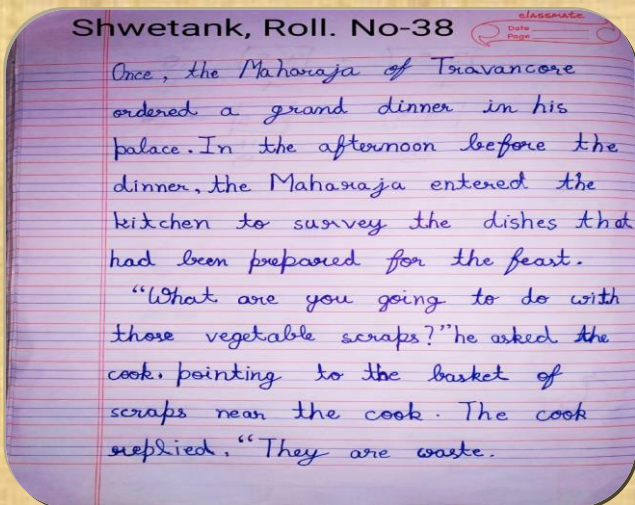 Shwetank, Roll. No-38
classmate
Date
Page
Once, the Maharaja of Travancore
ordered a grand dinner in his
palace. In the afternoon before the
dinner, the Maharaja entered the
kitchen to survey the dishes that
had been prepared for the feast.
"What are you going to do with
those vegetable scraps?" he asked the
cook. pointing to the basket of
scraps near the cook. The cook
replied, "They are waste.